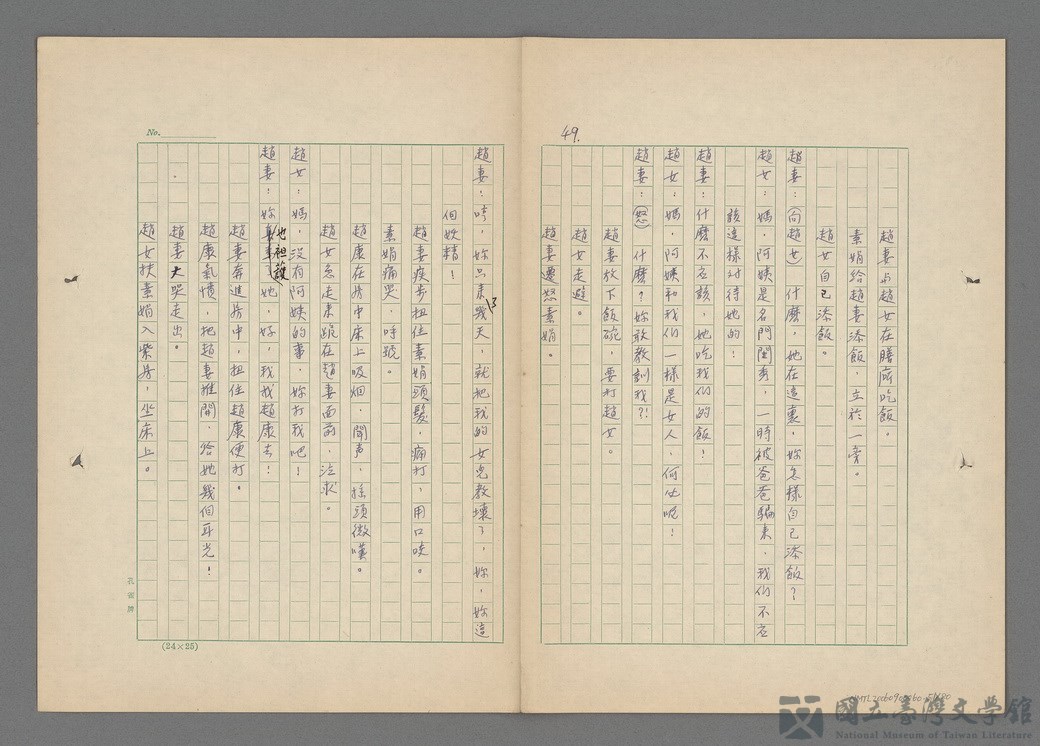 49.
趙妻与趙女在膳廳吃飯。
素娟給趙妻添飯，立於一旁。
趙女自己添飯。
趙妻：(向趙女)什麼，她在這裏，妳怎樣自己添飯？
趙女：媽，阿姨是名門閨秀，一時被爸爸騙來，我们不应
該這樣对待她的！
趙妻：什麼不应該，她吃我们的飯！
趙女：媽，阿姨和我们一樣是女人，何必呢！
趙妻：(怒)什麼？妳敢教訓我？！
趙妻放下飯碗，要打趙女。
趙女走避。
趙妻遷怒素娟。
No.
趙妻：哼，妳只来幾天，就把我的女兒教壞了，妳，妳這
個妖精！
趙妻疾步扭住素娟頭髮，痛打，用口咬。
素娟痛哭，呼號。
趙康在房中床上吸烟，聞声，搖頭微嘆。
趙女急走来跪在趙妻面前，泣求。
趙女：媽，沒有阿姨的事，妳打我吧！
趙妻：妳也袒護她，好，我找趙康去！
趙妻奔進房中，扭住趙康便打。
趙康氣憤，把趙妻推開，给她幾個耳光！
趙妻大哭走出。
趙女扶素娟入柴房，坐床上。
孔雀牌
(24×25)
國立臺灣文學館
National Museum of Taiwan Literature